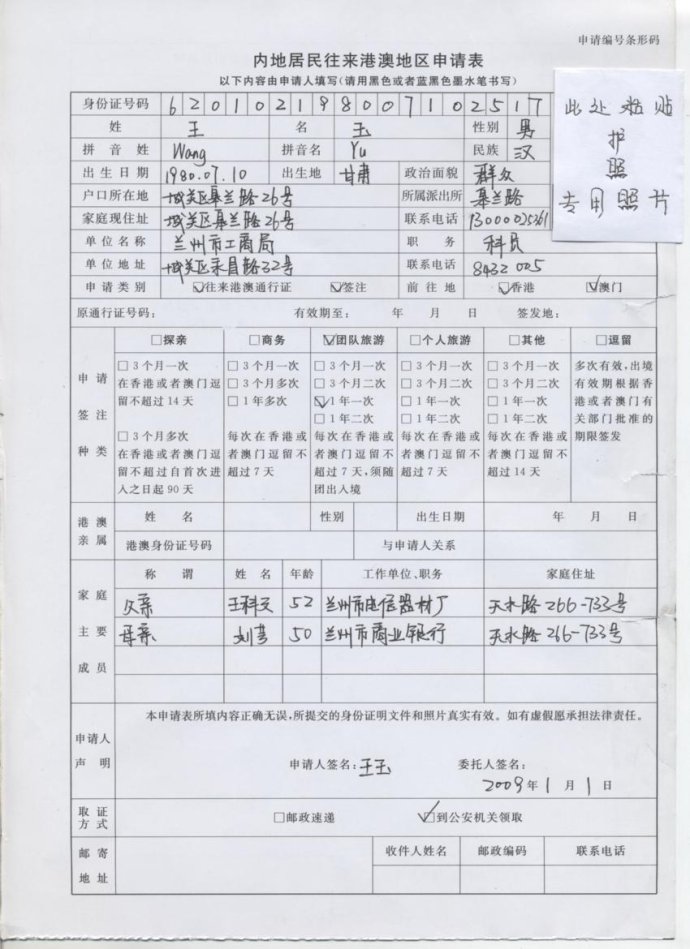 申请编号条形码
内地居民往来港澳地区申请表
以下内容由申请人填写(请用黑色或者蓝黑色墨水笔书写)
身份证号码 620102198007102517
此处粘贴
护
照
专用照片
姓 王 名 玉 性别 男
拼音姓 Wang 拼音名 Yu 民族 汉
出生日期 1980.07.10 出生地 甘肃 政治面貌 群众
户口所在地 城关区皋兰路26号 所属派出所 皋兰路
家庭现住址 城关区皋兰路26号 联系电话 13000025261
单位名称 兰州市工商局 职务 科员
单位地址 城关区永昌路32号 联系电话 8432005
申请类别 ☑往来港澳通行证 ☑签注 前往地 ☑香港 ☑澳门
原通行证号码: 有效期至: 年 月 日 签发地:
申请签注种类
□探亲 □商务 ☑团队旅游 □个人旅游 □其他 □逗留
□3个月一次 □3个月一次 □3个月一次 □3个月一次 □3个月一次 多次有效,出境
在香港或者澳门逗 □3个月多次 □3个月二次 □3个月二次 □3个月二次 有效期根据香
留不超过14天 □1年多次 ☑1年一次 □1年一次 □1年一次 港或者澳门有
□1年二次 □1年二次 □1年二次 关部门批准的
□3个月多次 每次在香港或 每次在香港或 每次在香港或 每次在香港或 期限签发
在香港或者澳门逗 者澳门逗留不 者澳门逗留不 者澳门逗留不 者澳门逗留不
留不超过自首次进 超过7天 超过7天,须随 超过7天 超过14天
入之日起90天 团出入境
港澳亲属
姓名 性别 出生日期 年 月 日
港澳身份证号码 与申请人关系
家庭主要成员
称谓 姓名 年龄 工作单位、职务 家庭住址
父亲 王科文 52 兰州市电信器材厂 天水路266-733号
母亲 刘芳 50 兰州市商业银行 天水路266-733号
申请人声明
本申请表所填内容正确无误,所提交的身份证明文件和照片真实有效。如有虚假愿承担法律责任。
申请人签名:王玉 委托人签名:
2009年1月1日
取证方式 □邮政速递 ☑到公安机关领取
邮寄地址 收件人姓名 邮政编码 联系电话